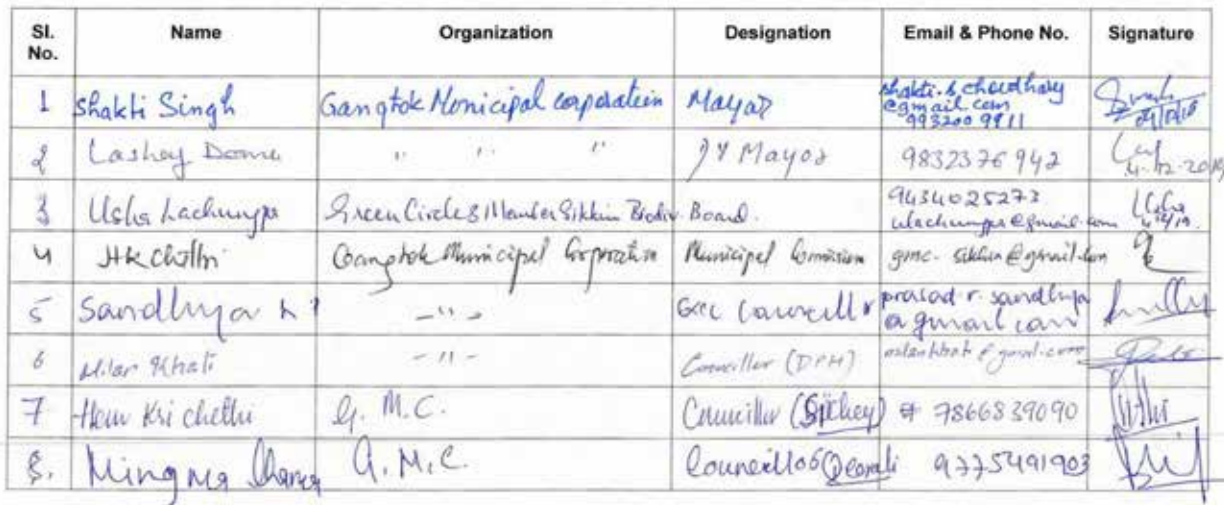 Sl. No. Name Organization Designation Email & Phone No. Signature
1 Shakti Singh Gangtok Monicipal corporatein Mayor shakti.s.choudhary @gmail.com 9932009911
2 Lashey Doma " " " DY Mayor 9832376942 4-12-2019
3 Usha Lachungpa Green Circle & Member Sikkim Biodiv. Board. 9434025273 ulachungpa@gmail.com
4 HK Chettri Gangtok Municipal Corporation Municipal gmc.sikkim@gmail.com
5 Sandhya -"- Councillor prasad.r.sandhya @gmail.com
6 Milan Khati -"- Councillor (DPH)
7 Hem Kri chettri G.M.C. Councillor (Sichey) 7866839090
8. Mingma G.M.C. Councillor (Deorali 9775491903